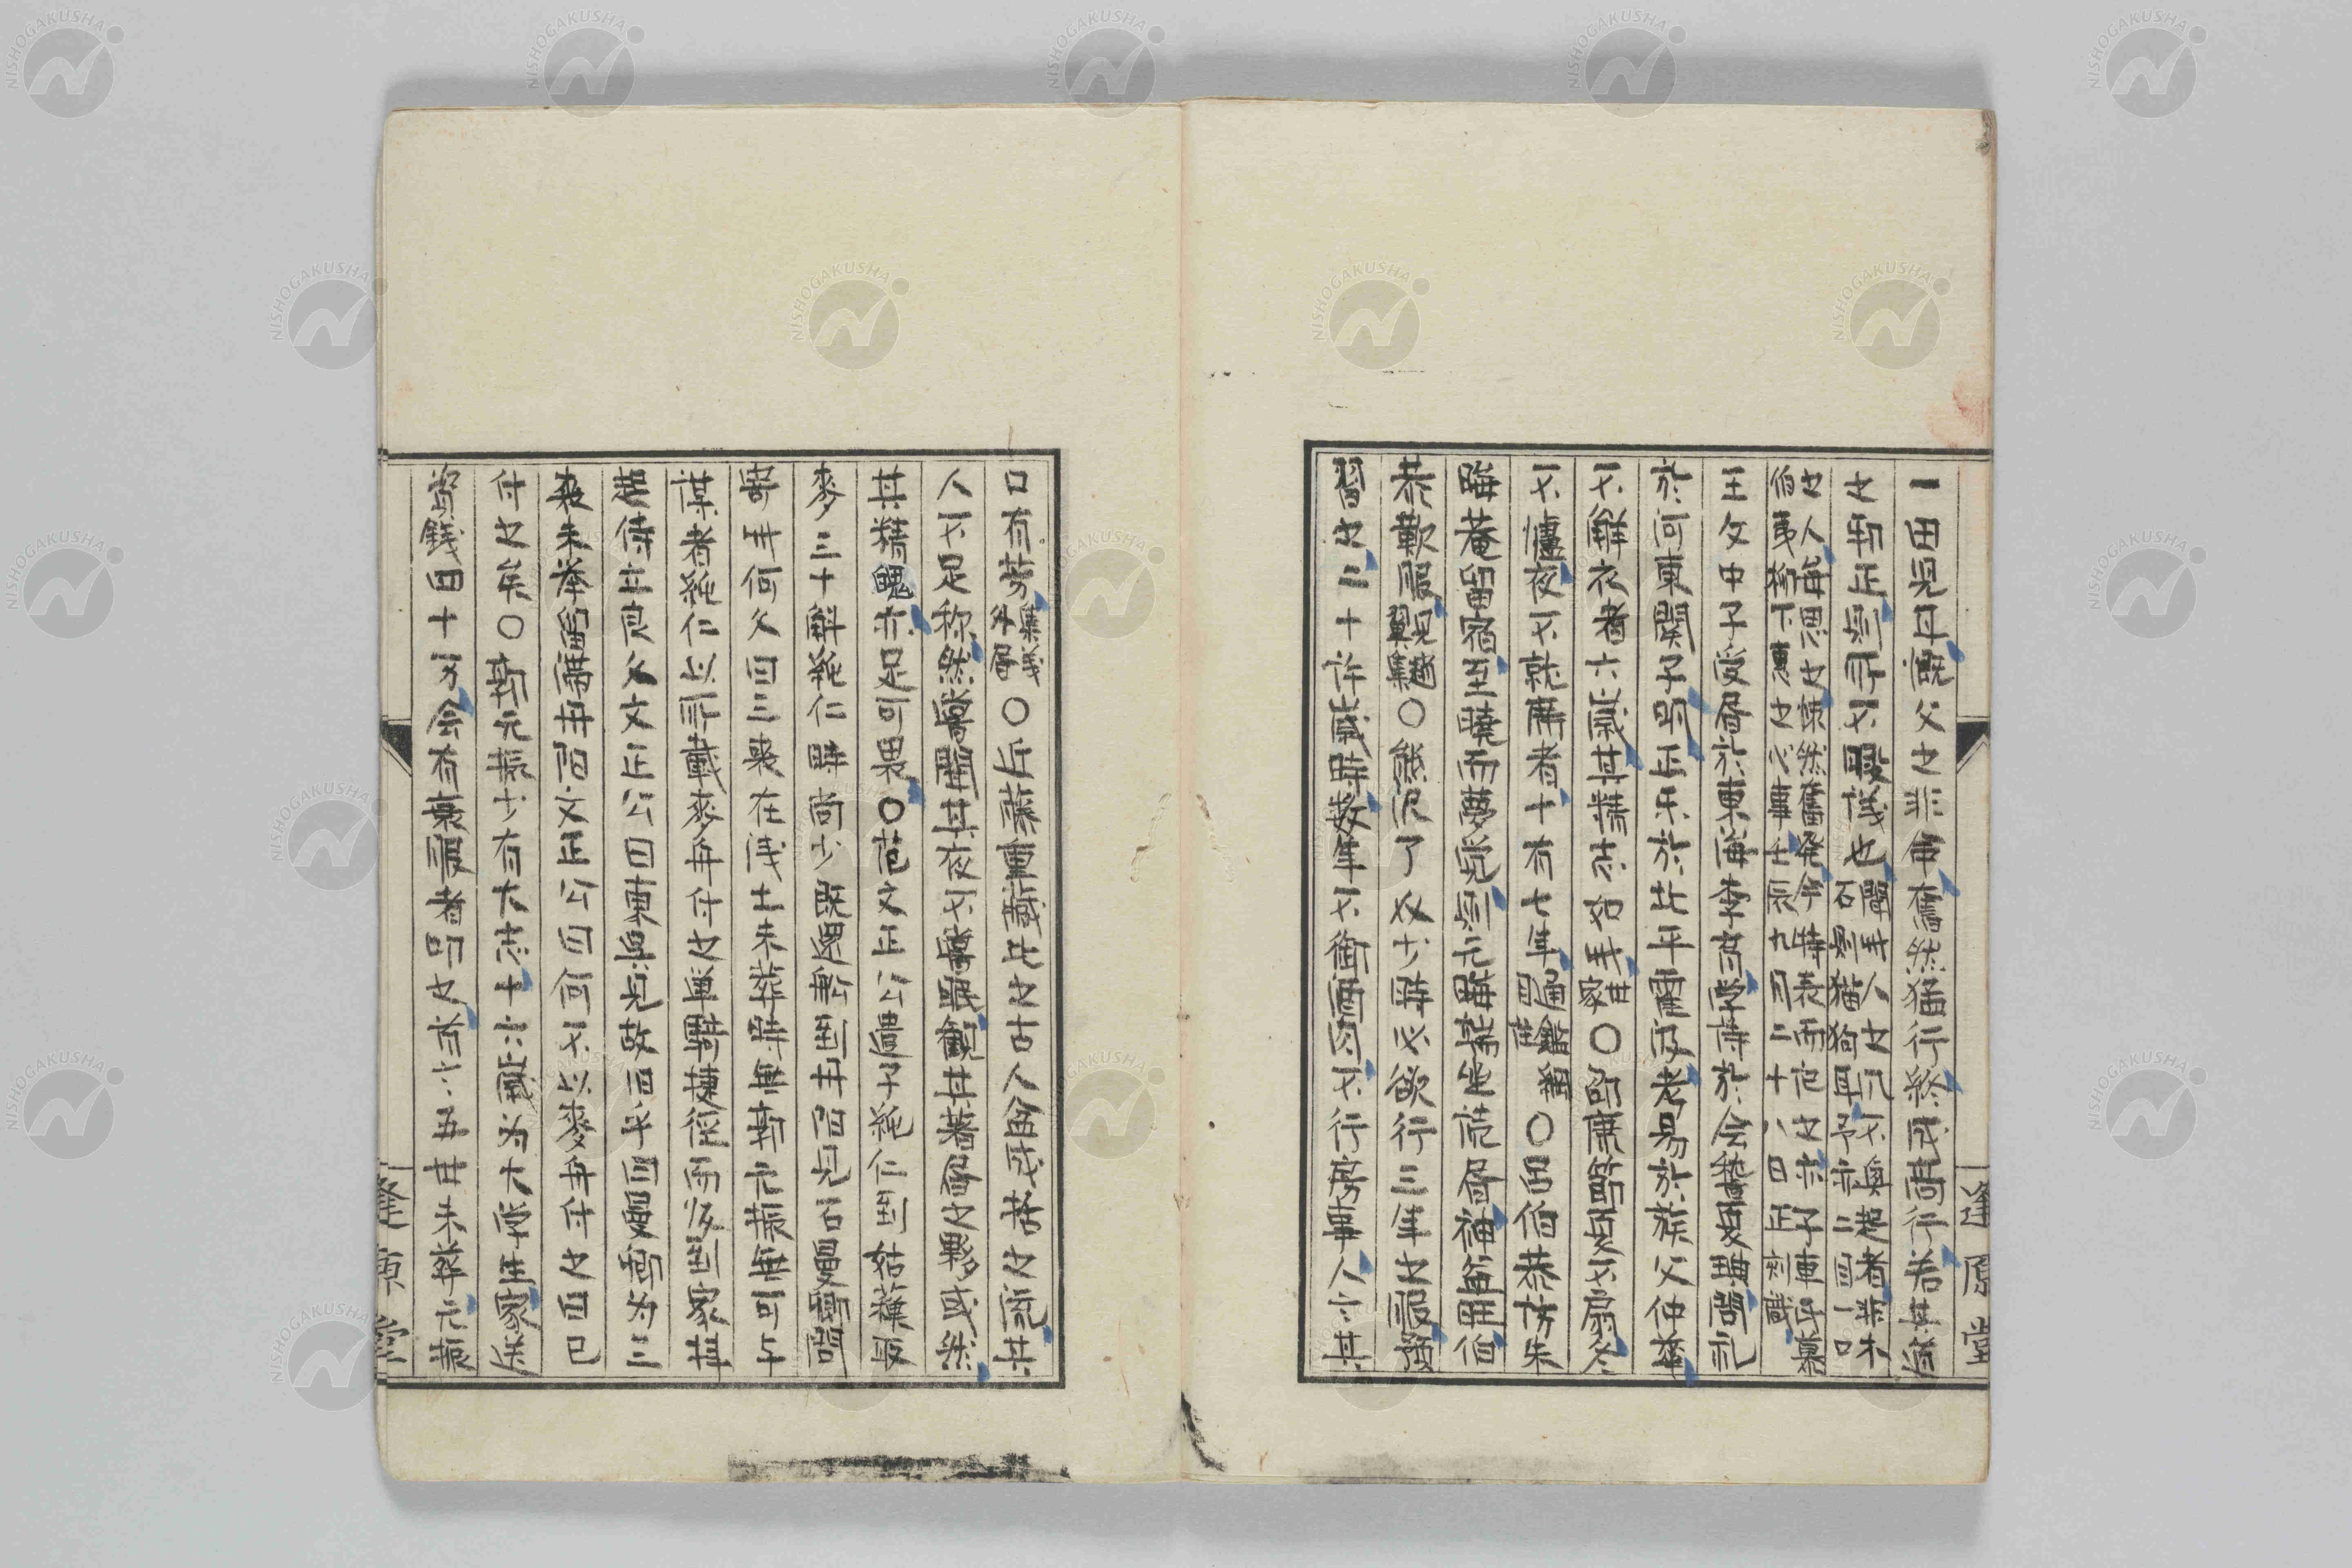 一田児耳慨父之非命奮然猶行終成高行若其道
之初正則所不暇議也
聞其人之凡不興起者非木
石則猫狗耳予亦二目一口
之人毎思之悚然奮発今特表而出之亦子車氏慕
伯夷柳下恵之心事壬辰九月二十八日正剛識
王文中子受書於東海李育学詩於会稽夏琠問礼
於河東関子明正楽於北平霍汲考易於族父仲華
不解衣者六歳其精志如此
家世
〇邵康節夏不扇冬
不爐夜不就席者十有七年
通鑑綱
目荘
〇呂伯恭訪朱
晦菴留宿至暁而夢覚則元晦端坐読書神益旺伯
恭歎服
見趙
翼集
〇熊沢了介少時必欲行三年之服預
習之二十許歳時数年不銜酒肉不行房事人言其
口有芳
集義
外書
〇近藤重蔵氏之古人盆成括之流其
人不足称然嘗聞其夜不嘗眠観其著書之夥或然
其精魄亦足可畏〇范文正公遣子純仁到姑蘇取
麦三十斛純仁時尚少既還船到丹陽見石曼卿問
寄此何久曰三喪在浅土未葬時無郭元振無可与
謀者純仁以所載麦舟付之単騎捷径而帰到家拝
起侍立良久文正公曰東呉見故旧乎曰曼卿為三
喪未挙留滞丹陽文正公曰何不以麦舟付之曰已
付之矣〇郭元振少有大志十六歳為大学生家送
資銭四十万会有衰服者叩之言六五世未葬元振
逢原堂
逢原堂